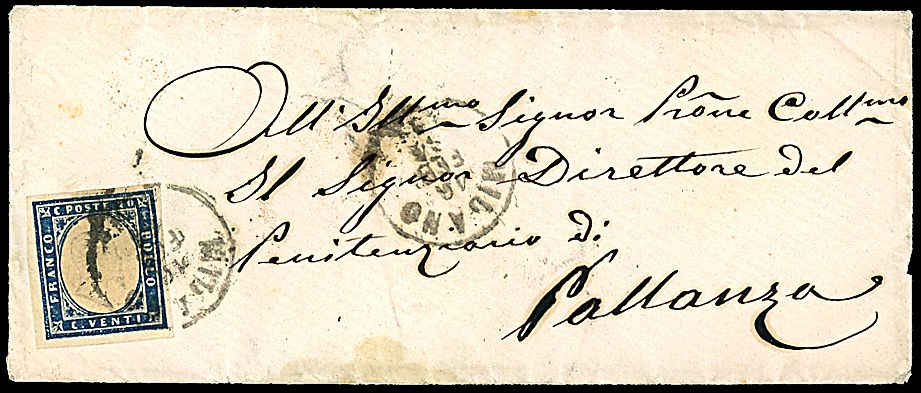 All' Ill.mo Signor Prône Coll.mo
Il Signor Direttore del
Penitenziario di
Pallanza
MILANO
C. POSTE 20
FRANCO
BOLLO
C. VENTI
MILA